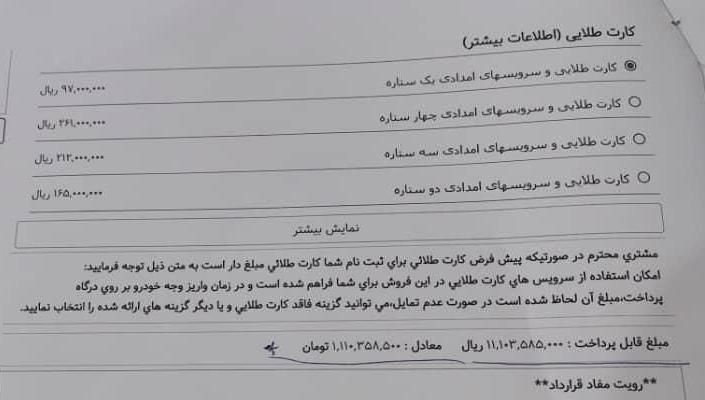 کارت طلایی (اطلاعات بیشتر)
کارت طلایی و سرویسهای امدادی یک ستاره ۹۷,۰۰۰,۰۰۰ ریال
کارت طلایی و سرویسهای امدادی چهار ستاره ۲۶۱,۰۰۰,۰۰۰ ریال
کارت طلایی و سرویسهای امدادی سه ستاره ۲۱۲,۰۰۰,۰۰۰ ریال
کارت طلایی و سرویسهای امدادی دو ستاره ۱۶۵,۰۰۰,۰۰۰ ریال
نمایش بیشتر
مشتري محترم در صورتیکه پیش فرض کارت طلائي براي ثبت نام شما کارت طلائي مبلغ دار است به متن ذیل توجه فرمایید:
امکان استفاده از سرویس هاي کارت طلایي در این فروش براي شما فراهم شده است و در زمان واریز وجه خودرو بر روي درگاه
پرداخت،مبلغ آن لحاظ شده است در صورت عدم تمایل،مي توانید گزینه فاقد کارت طلایي و یا دیگر گزینه هاي ارائه شده را انتخاب نمایید.
مبلغ قابل پرداخت : ۱۱,۱۰۳,۵۸۵,۰۰۰ ریال معادل : ۱,۱۱۰,۳۵۸,۵۰۰ تومان
**رویت مفاد قرارداد**